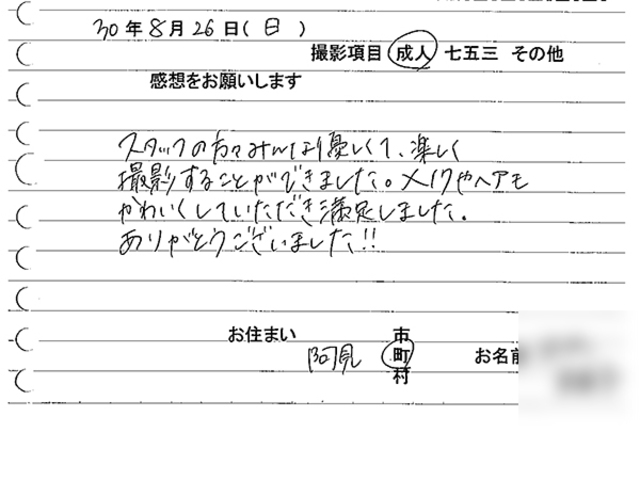 30年8月26日(日)
撮影項目 成人 七五三 その他
感想をお願いします
スタッフの方々みんな優しくて、楽しく
撮影することができました。メイクやヘアも
かわいくしていただき満足しました。
ありがとうございました!!
お住まい 阿見 市 町 村 お名前